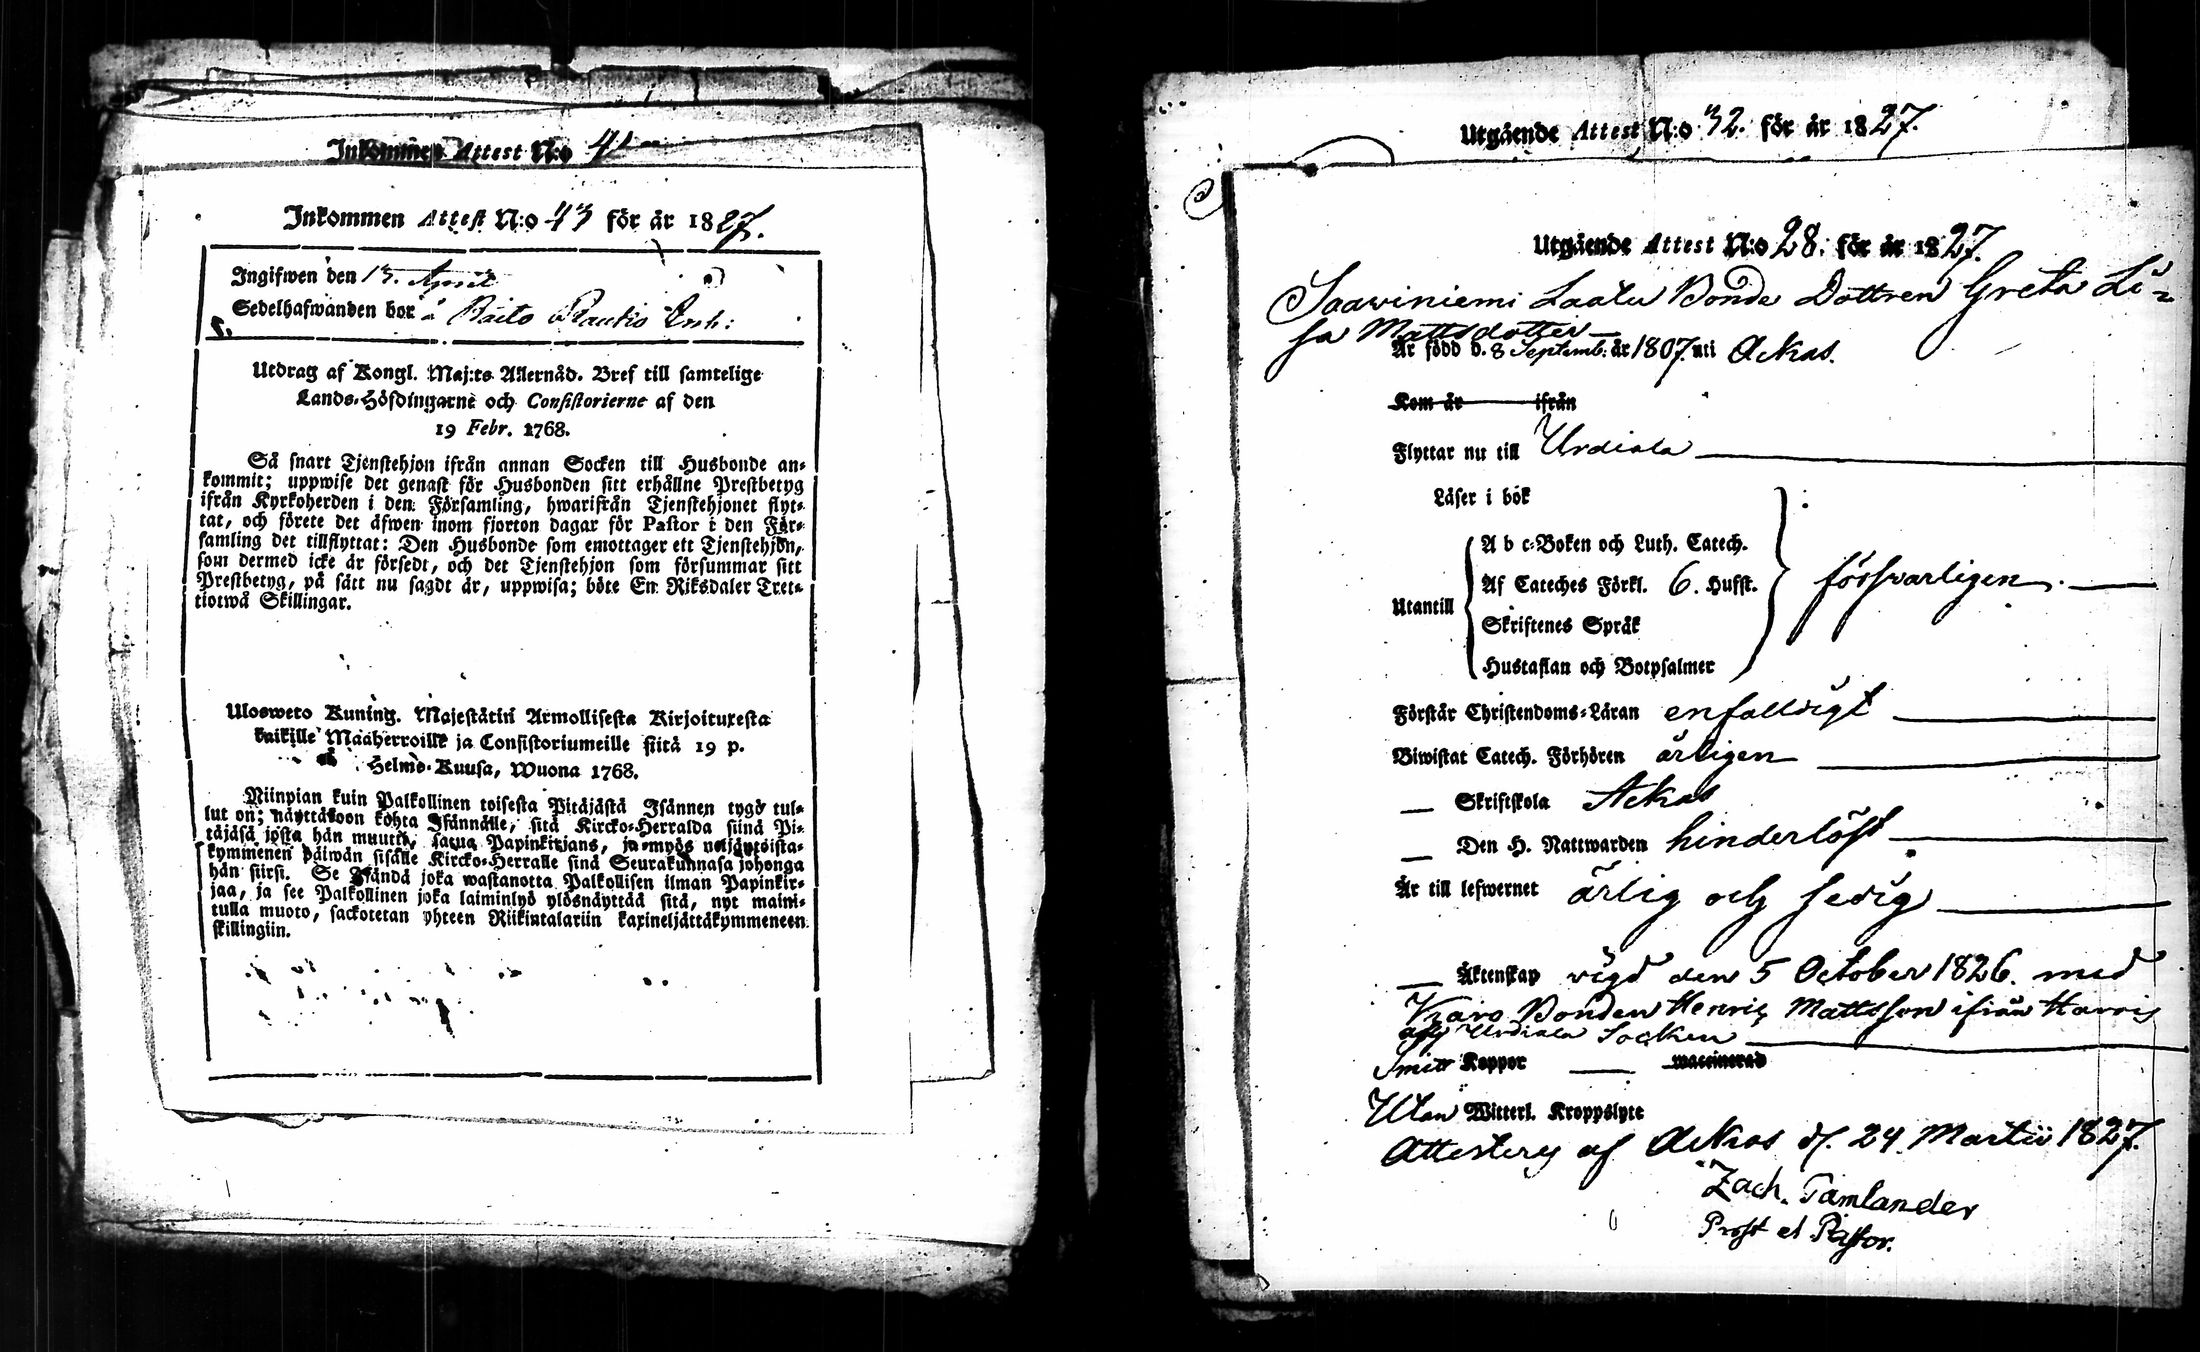 Inkommen Attest N:o 41
Inkommen Attest N:o 43 för år 1827.
Ingifwen den 13. April
Sedelhafwanden bor å Raito Rautio Inh:
Utdrag af Kongl. Maj:ts Allernåd. Bref till samtelige
Lands-Höfdingarne och Consistorierne af den
19 Febr. 1768.
Så snart Tjenstehjon ifrån annan Socken till Husbonde an-
kommit; uppwise det genast för Husbonden sitt erhållne Prestbetyg
ifrån Kyrkoherden i den Församling, hwarifrån Tjenstehjonet flyt-
tat, och förete det äfwen inom fjorton dagar för Pastor i den För-
samling det tillflyttat: Den Husbonde som emottager ett Tjenstehjon,
som dermed icke är försedt, och det Tjenstehjon som försummar sitt
Prestbetyg, på sätt nu sagdt är, uppwisa; böte En Riksdaler Tret-
tiotwå Skillingar.
Ulosweto Kuning. Majestätin Armollisesta Kirjoituxesta
kaikille Maaherroille ja Consistoriumeille siitä 19 p.
Helme-Kuusa, Wuona 1768.
Niinpian kuin Palkollinen toisesta Pitäjästä Isännen tygö tul-
lut on; näyttäkoon kohta Isännälle, sitä Kircko-Herralda siinä Pi-
täjäsä josta hän muutti, saatua Papinkirjans, ja myös neljäntoista-
kymmenen päiwän sisälle Kircko-Herralle siinä Seurakunnasa johonga
hän siirsi. Se Isändä joka wastanotta Palkollisen ilman Papinkir-
jaa, ja see Palkollinen joka laiminlyö ylösnäyttää sitä, nyt maini-
tulla muoto, sackotetan yhteen Riikintalariin kaxineljättäkymmeneen
skillingiin.
Utgående Attest N:o 32. för år 1827.
Utgående Attest N:o 28. för år 1827.
Saariniemi Laalu Bonde Dottren Greta Li-
sa Mattsdotter
Är född d. 8 Septemb: år 1807. uti Ackas.
Kom år ifrån
Flyttar nu till Urdiala
Läser i bok
A b c-Boken och Luth. Catech.
Af Cateches Förkl. 6. Hufst.
försvarligen.
Utantill
Skriftenes Språk
Hustaflan och Botpsalmer
Förstår Christendoms-Läran enfalldigt
Biwistat Catech. Förhören årligen
Skriftskola Ackas
Den H. Nattwarden hinderlöst
Är till lefwernet ärlig och sedig
Äktenskap vigd den 5 October 1826. med
Bonden Henric Mattsson ifrån
Urdiala Socken
Koppor waccinerad
Utan Witterl. Kroppslyte
Attesterg af Ackas d. 24 Martii 1827.
Zach. Tamlander
Prost et Pastor.